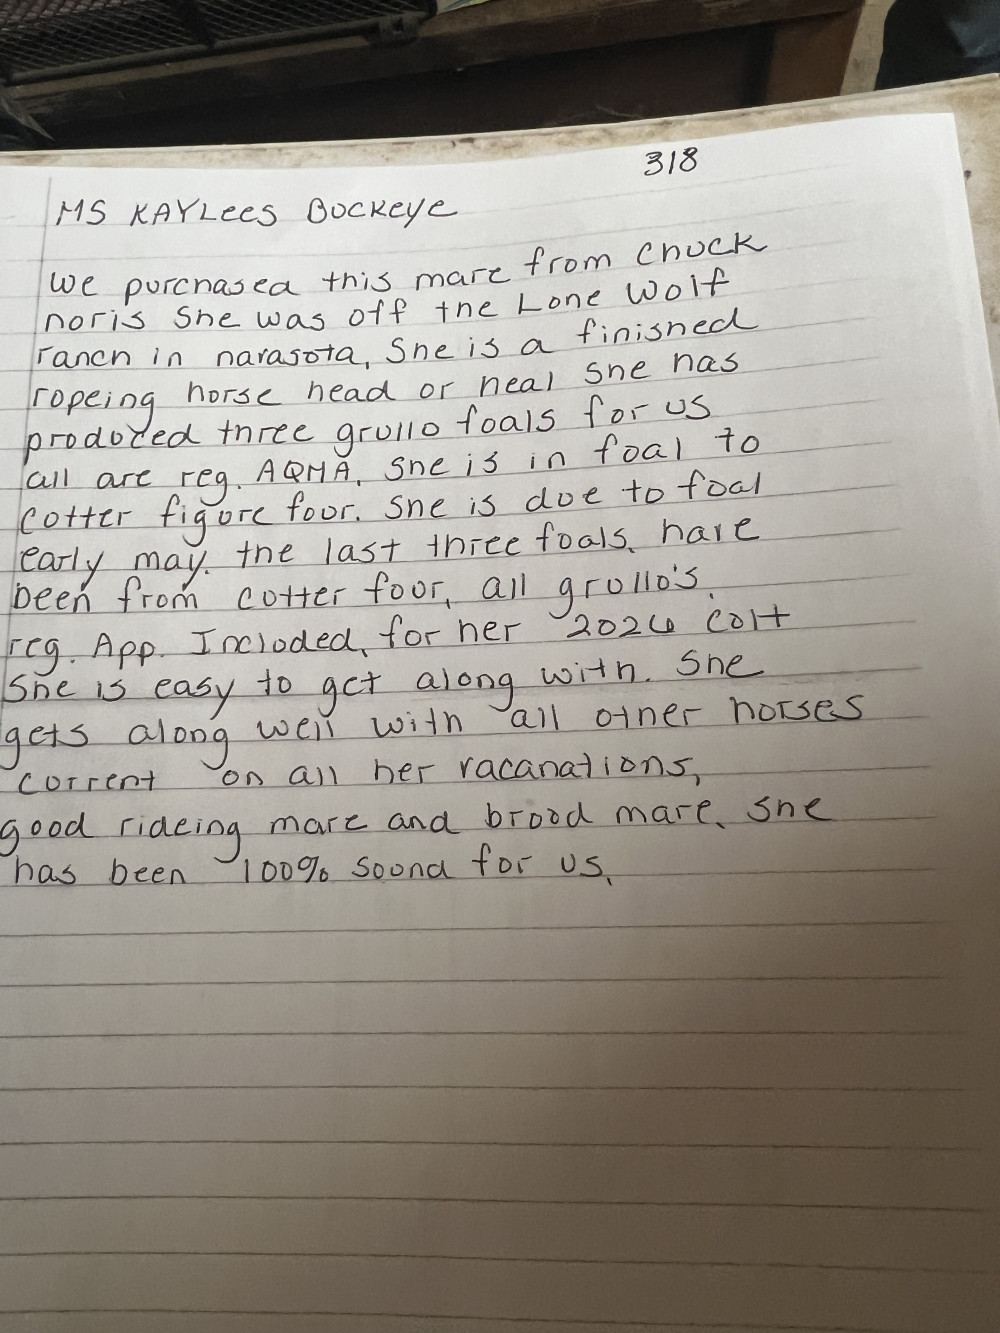 318
MS KAYLees Buckeye
We purchased this mare from Chuck
noris She was off the Lone Wolf
ranch in narasota, She is a finished
ropeing horse head or heal She has
produced three grullo foals for us
all are reg. AQHA. She is in foal to
Cotter figure four. She is due to foal
early may. the last three foals, have
been from cotter four, all grullo's.
reg. App. Included, for her 2026 colt
She is easy to get along with. She
gets along well with all other horses
current on all her vacanations,
good rideing mare and brood mare, she
has been 100% sound for us,